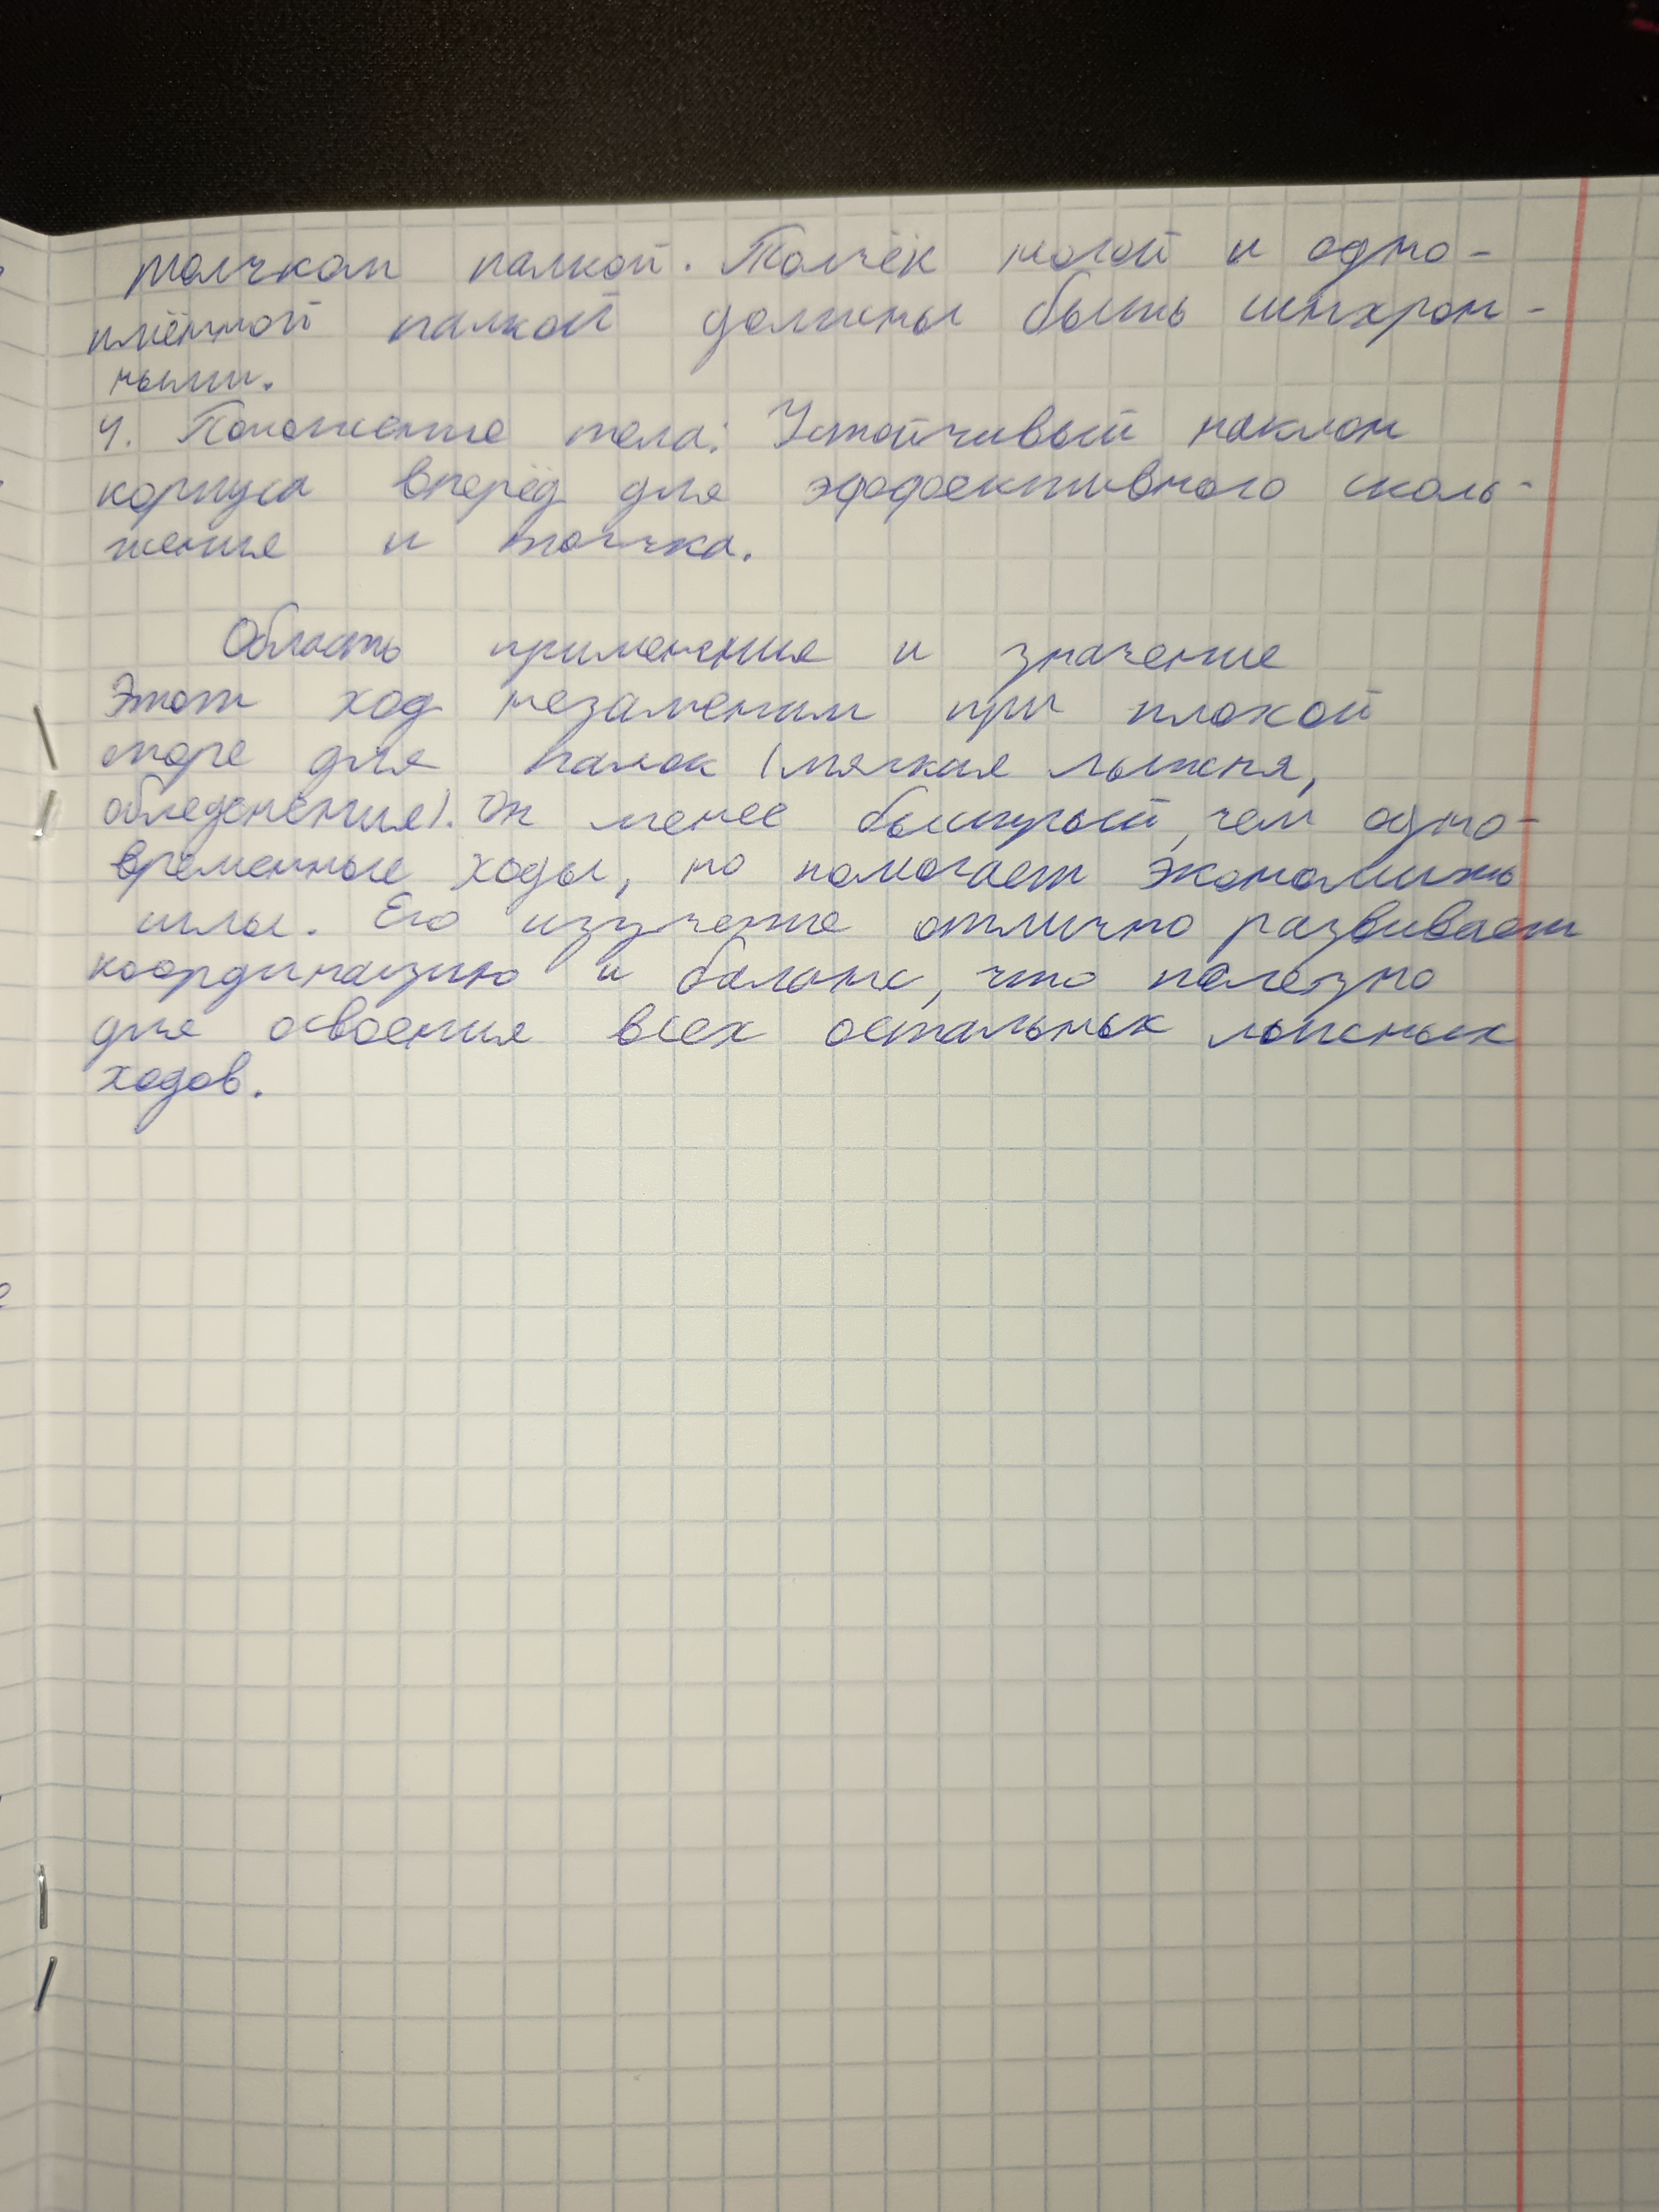 толчком палкой. Толчёк ногой и одно-
имённой палкой должны быть синхрон-
ными.
4. Положение тела: Устойчивый наклон
корпуса вперёд для эффективного сколь-
жения и толчка.
Область применения и значение
Этот ход незаменим при плохой
опоре для палок (мягкая лыжня,
обледенение). Он менее быстрый, чем одно-
временные ходы, но помогает экономить
силы. Его изучение отлично развивает
координацию и баланс, что полезно
для освоения всех остальных лыжных
ходов.